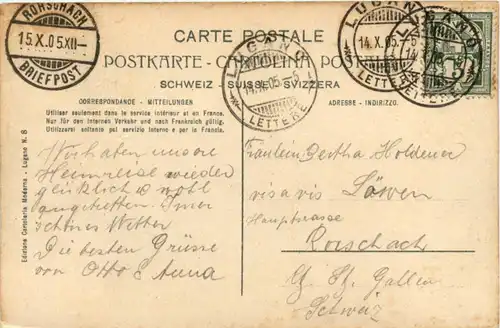 RORSCHACH
15.X.05.XII
BRIEFPOST
CARTE POSTALE
POSTKARTE - CARTOLINA POSTALE
SCHWEIZ - SUISSE - SVIZZERA
LUGANO
14.X.05.-5
LETTERE
LUGANO
14.X.05.-5
LETTERE
LUGANO
LETTERE
CORRESPONDANCE - MITTEILUNGEN
Utiliser seulement dans le service intérieur et en France.
Nur für den internen Verkehr und nach Frankreich gültig.
Utilizzarsi soltanto pel servizio interno e per la Francia.
ADRESSE - INDIRIZZO.
Edizione Cartoleria Moderna - Lugano N. 8
Wir haben unsere
Heimreise wieder
glücklich & wohl
angetretten. Imer
schönes Wetter
Die besten Grüsse
von Otto & Anna
Fräulein Bertha Holdener
vis a vis Löwen
Hauptstrasse
Rorschach
Ct. St. Gallen
Schweiz